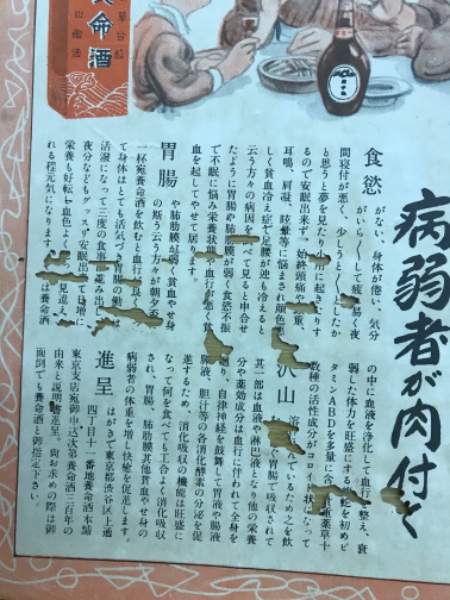 病弱者が肉付く
養命酒
食慾がない、身体が倦い、気分
がいら〱して疲れ易く夜
間寝付が悪く、少しうと〱したか
と思うと夢を見たり
るので安眠出来ず、始終頭痛や
耳鳴、肩凝、眩暈等に悩まされ顔色悪
しく貧血冷え症で足腰が冷えると
云う方々の病因を
べて見ると申合せ
たように胃腸や肺肋膜が弱く食慾不振
で不眠に悩み栄養状態や血行が悪く貧
血を起してやせて居ります。
胃腸や肺肋膜が弱く貧血やせ身
の斯う云う方々が朝夕
一杯宛養命酒を飲むと血行は良く
て身体はとても活気づき胃腸の動
活潑になって三度の食事
夜分などもグッスリ安眠出来て日増に
栄養も好転し血色よく
見違え
れる程元気になります。
は養命酒
の中に血液を浄化して血行を整え、衰
弱した体力を旺盛にする
蛇を初めビ
タミンABDを多量に含
薬草十
数種の活性成分がコロイド状になって
沢山
溶け込んでいるため之を飲
胃腸で吸収されて
其一部は血液や淋巴液となり他の栄養
分や薬効成分は血行に伴われて全身を
廻り、自律神経を鼓舞して胃液や腸液
膵液、胆汁等の各消化酵素の分泌を促
進するため、消化吸収の機能は旺盛に
なって何を食べても工合よく消化吸収
され、胃腸、肺肋膜其他貧血やせ身の
病弱者の体重を増し快癒を促進します。
進呈
はがきで東京都渋谷区上通
四丁目十一番地養命酒本舗
東京支店宛御申込次第養命酒三百年の
由来と説明書進呈。尚お求めの際は御
面倒でも養命酒と御指定下さい。